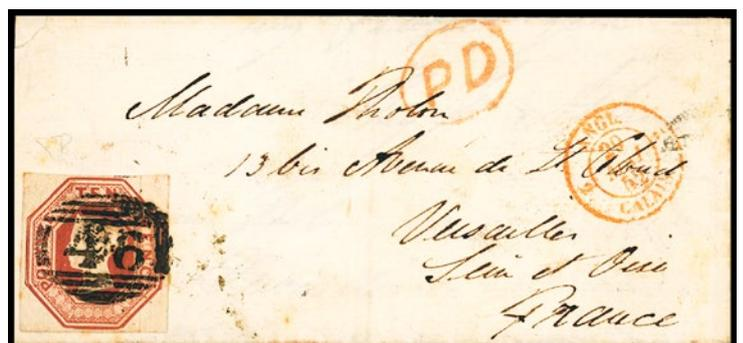 PD
Madame Tholon
13 bis Avenue de St Cloud
Versailles
Seine et Oise
France
ANGL.
2
CALAIS
TEN
PENCE
PO
46